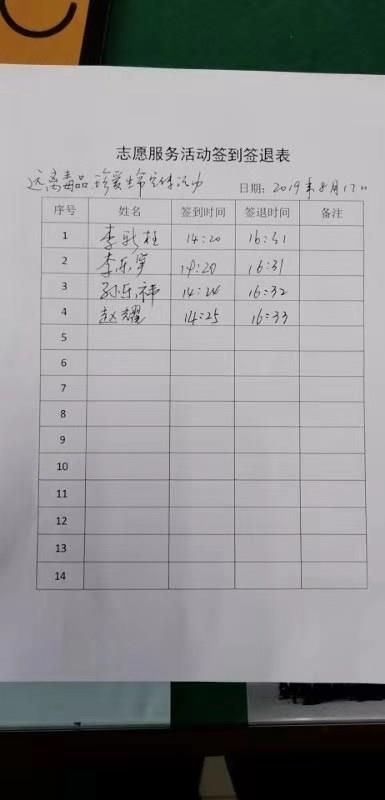 志愿服务活动签到签退表
远离毒品 珍爱生命宣传活动 日期：2019年8月17日
序号 姓名 签到时间 签退时间 备注
1 李新柱 14:20 16:31
2 李乐 14:20 16:31
3 孙乐祎 14:24 16:32
4 赵耀 14:25 16:33
5
6
7
8
9
10
11
12
13
14